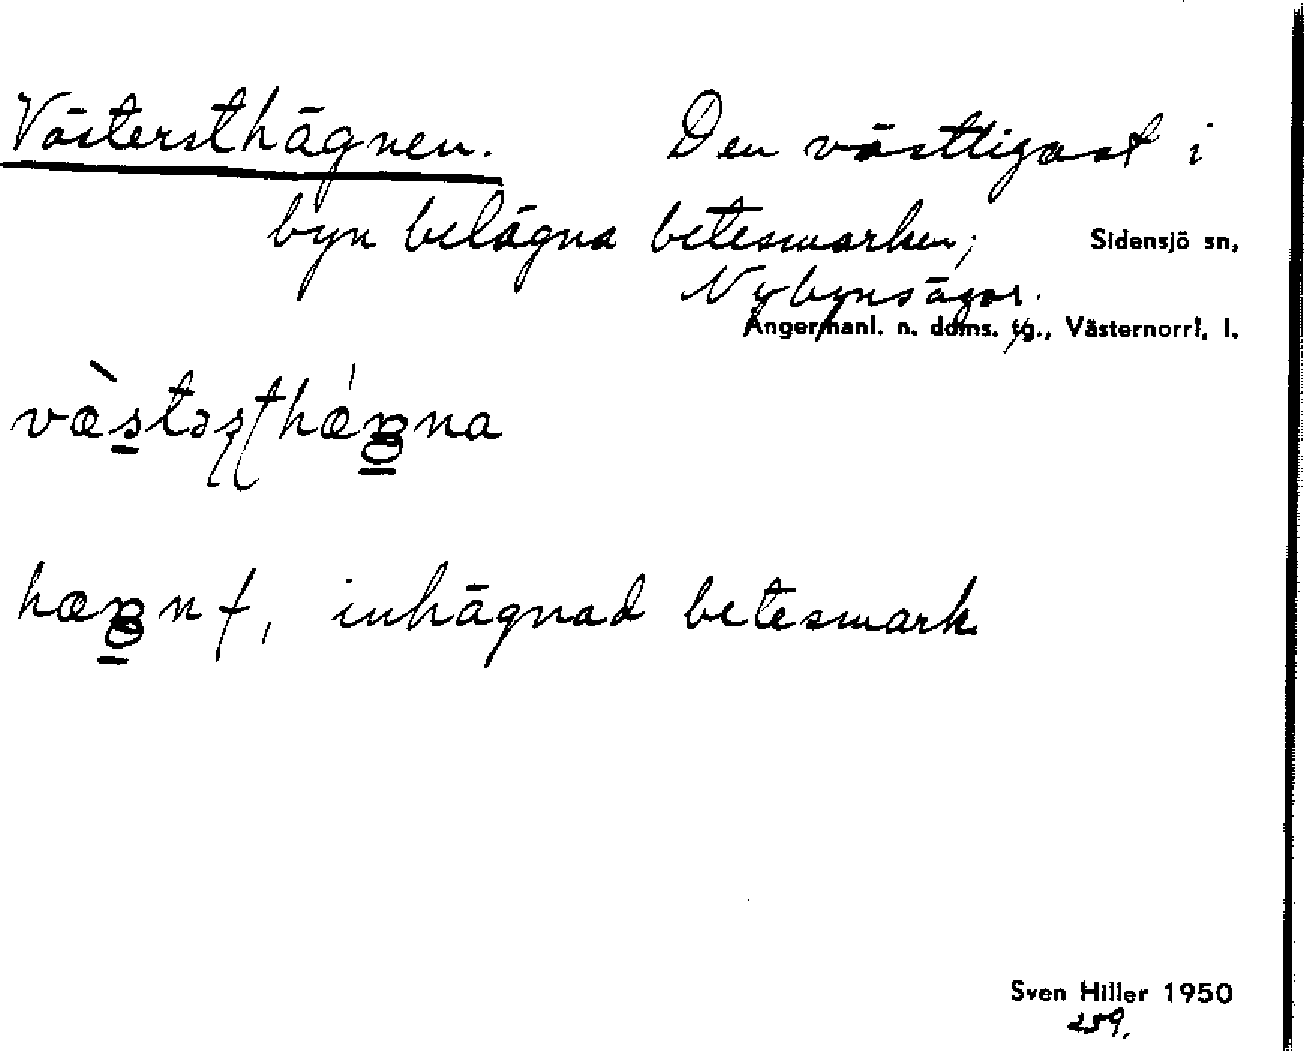 Västersthägnen. Den västligast i
byn belägna betesmarken; Sidensjö sn.
Nybyns ägor.
Ångermanl. n. doms. tg., Västernorrl. l.
inhägnad betesmark
Sven Hiller 1950
259.